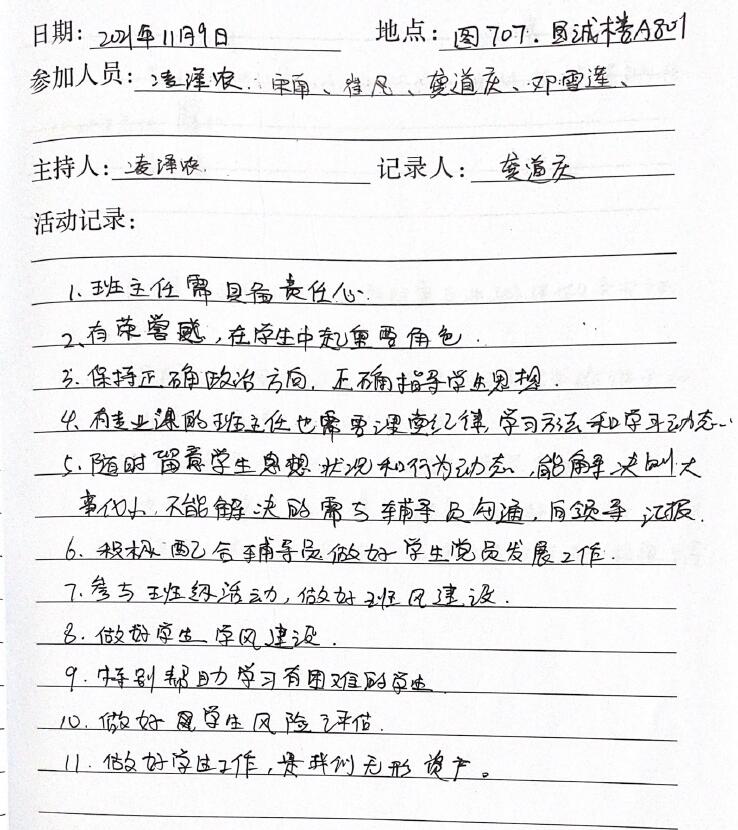 日期: 2021年11月9日 地点: 图707.思诚楼A801
参加人员: 凌泽农、宋雨、崔凡、龚道庆、邓雪莲、
主持人: 凌泽农 记录人: 龚道庆
活动记录:
1. 班主任需具备责任心.
2. 有荣誉感,在学生中起重要角色.
3. 保持正确政治方向,正确指导学生思想.
4. 有专业课的班主任也需要课堂纪律,学习方法和学习动态..
5. 随时留意学生思想状况和行为动态,能解决则大
事化小,不能解决的需与辅导员勾通,向领导汇报.
6. 积极配合辅导员做好学生党员发展工作.
7. 参与班级活动,做好班风建设.
8. 做好学生学风建设.
9. 特别帮助学习有困难的学生
10. 做好学生风险评估.
11. 做好学生工作,是我们无形资产。